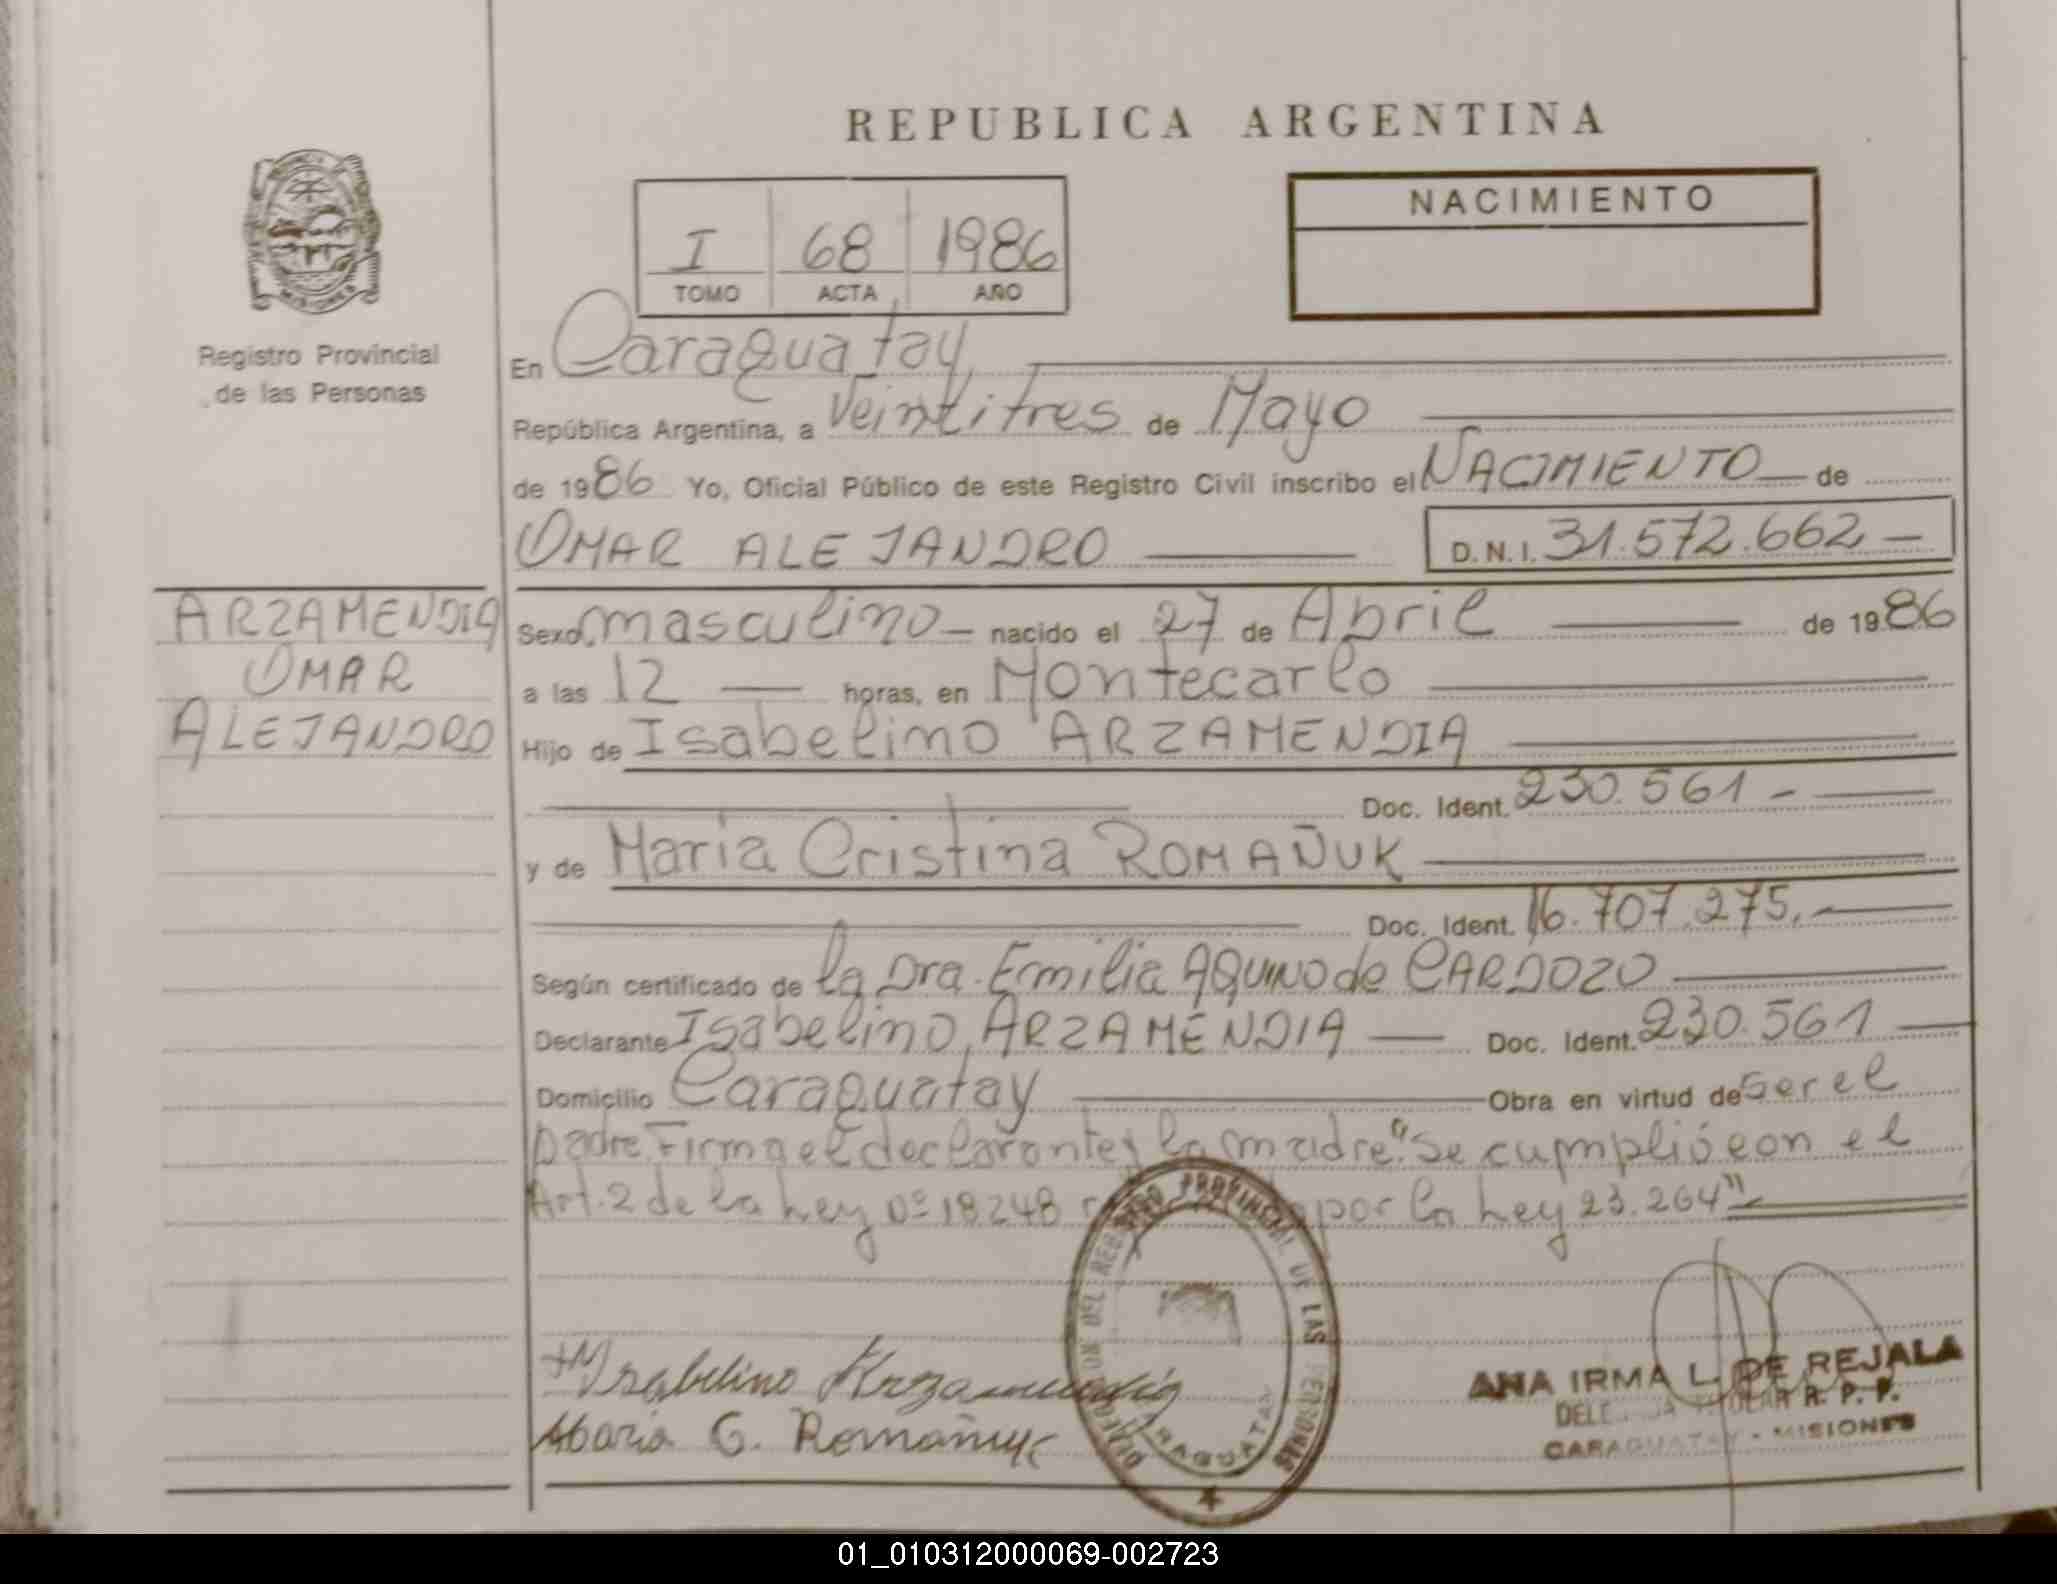 REPUBLICA ARGENTINA
NACIMIENTO
I 68 1986
TOMO ACTA AÑO
MISIONES
Registro Provincial
de las Personas
En Caraguatay,
República Argentina, a Veintitres de Mayo
de 1986 Yo, Oficial Público de este Registro Civil inscribo el NACIMIENTO de
OMAR ALEJANDRO D.N.I. 31.572.662
ARZAMENDIA
OMAR
ALEJANDRO
Sexo masculino nacido el 27 de Abril de 1986
a las 12 horas, en Montecarlo
Hijo de Isabelino ARZAMENDIA
Doc. Ident. 230.561
y de María Cristina ROMAÑUK
Doc. Ident. 16.707.275.
Según certificado de la Dra. Emilia AQUINO de CARDOZO
Declarante Isabelino ARZAMENDIA Doc. Ident. 230.561
Domicilio Caraguatay Obra en virtud de ser el
padre. Firma el declarante y la madre. "Se cumplió con el
Art. 2 de la Ley nº 18248 por la Ley 23.264"
Isabelino Arzamendia
Maria C. Romañuk
DEL REGISTRO PROVINCIAL DE LAS PERSONAS
CARAGUATAY
ANA IRMA L. DE REJALA
DELEGADA TITULAR R. P. P.
CARAGUATAY - MISIONES
01_010312000069-002723